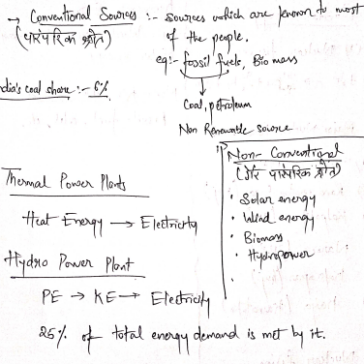 → Conventional Sources :- sources which are known to most
(पारंपरिक स्रोत) of the people.
eg:- fossil fuels, Bio mass
dia's coal share :- 6%
Coal, petroleum
Non Renewable source
Thermal Power Plants
Heat Energy → Electricity
Hydro Power Plant
PE → KE → Electricity
25% of total energy demand is met by it.
Non-Conventional
(गैर पारंपरिक स्रोत)
• Solar energy
• Wind energy
• Biomass
• Hydropower
•